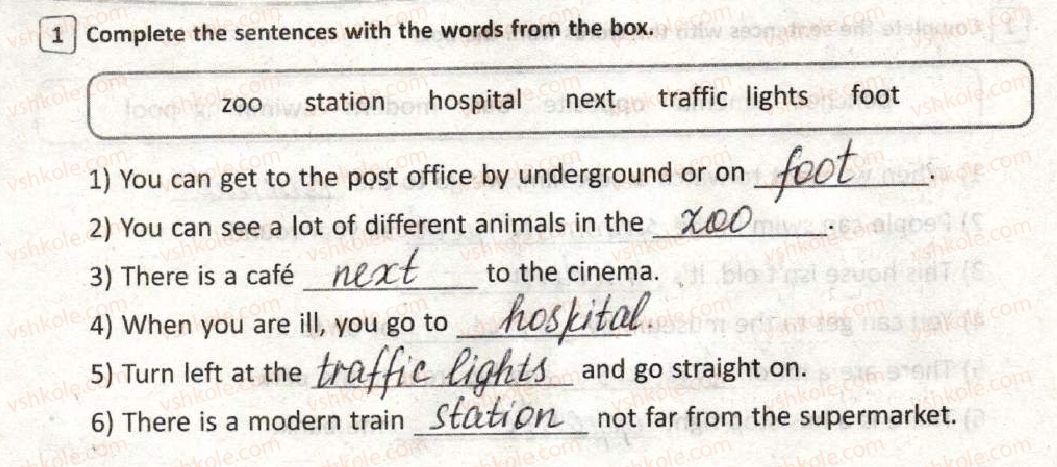 1 Complete the sentences with the words from the box.
zoo station hospital next traffic lights foot
1) You can get to the post office by underground or on foot.
2) You can see a lot of different animals in the zoo.
3) There is a café next to the cinema.
4) When you are ill, you go to hospital.
5) Turn left at the traffic lights and go straight on.
6) There is a modern train station not far from the supermarket.